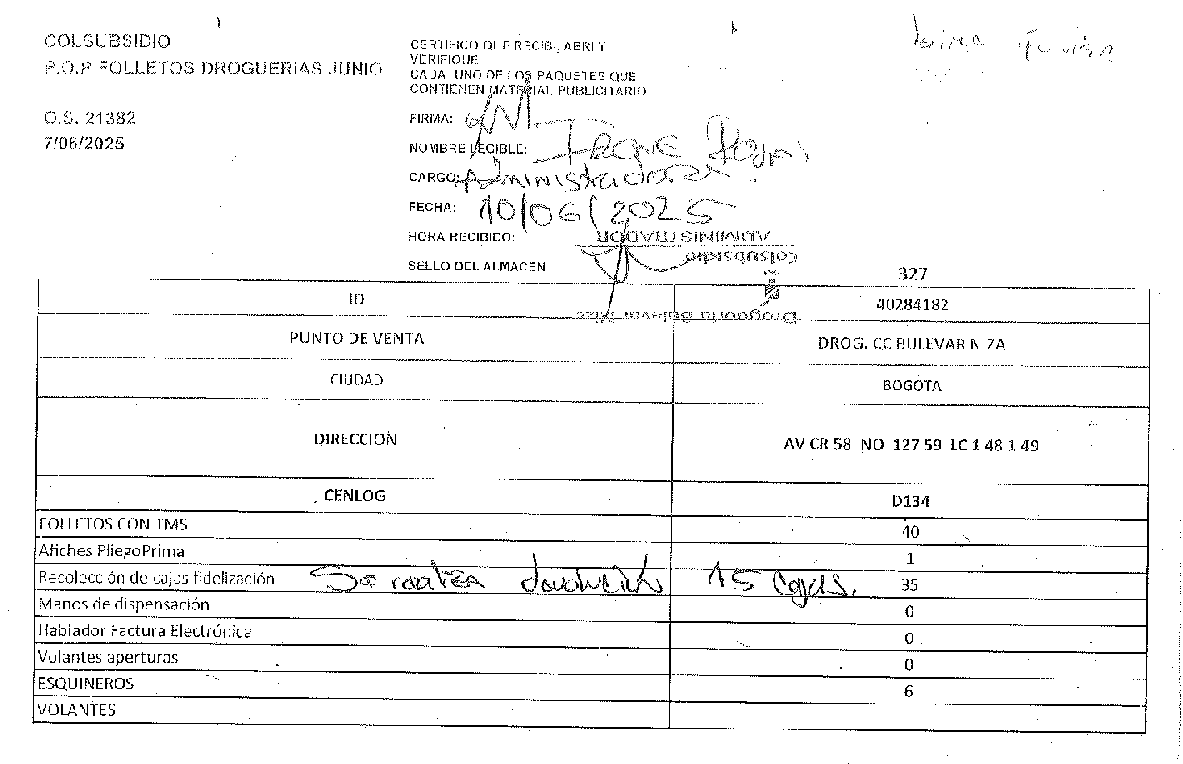 COLSUBSIDIO
P.O.P FOLLETOS DROGUERIAS JUNIO
O.S. 21382
7/06/2025
CERTIFICO QUE RECIBI, ABRI Y
VERIFIQUE
CADA UNO DE LOS PAQUETES QUE
CONTIENEN MATERIAL PUBLICITARIO
FIRMA:
NOMBRE LEGIBLE:
CARGO: Administradora
FECHA: 10/06/2025
HORA RECIBIDO:
ADMINISTRADOR
Colsubsidio
SELLO DEL ALMACEN
327
ID 40284182
PUNTO DE VENTA DROG. CC BULEVAR N-ZA
CIUDAD BOGOTA
DIRECCION AV CR 58 NO 127 59 LC 1 48 1 49
CENLOG D134
FOLLETOS CON TMS 40
Afiches PliegoPrima 1
Recolección de cajas fidelización Se realiza devolución 15 cajas. 35
Manos de dispensación 0
Hablador Factura Electrónica 0
Volantes aperturas 0
ESQUINEROS 6
VOLANTES